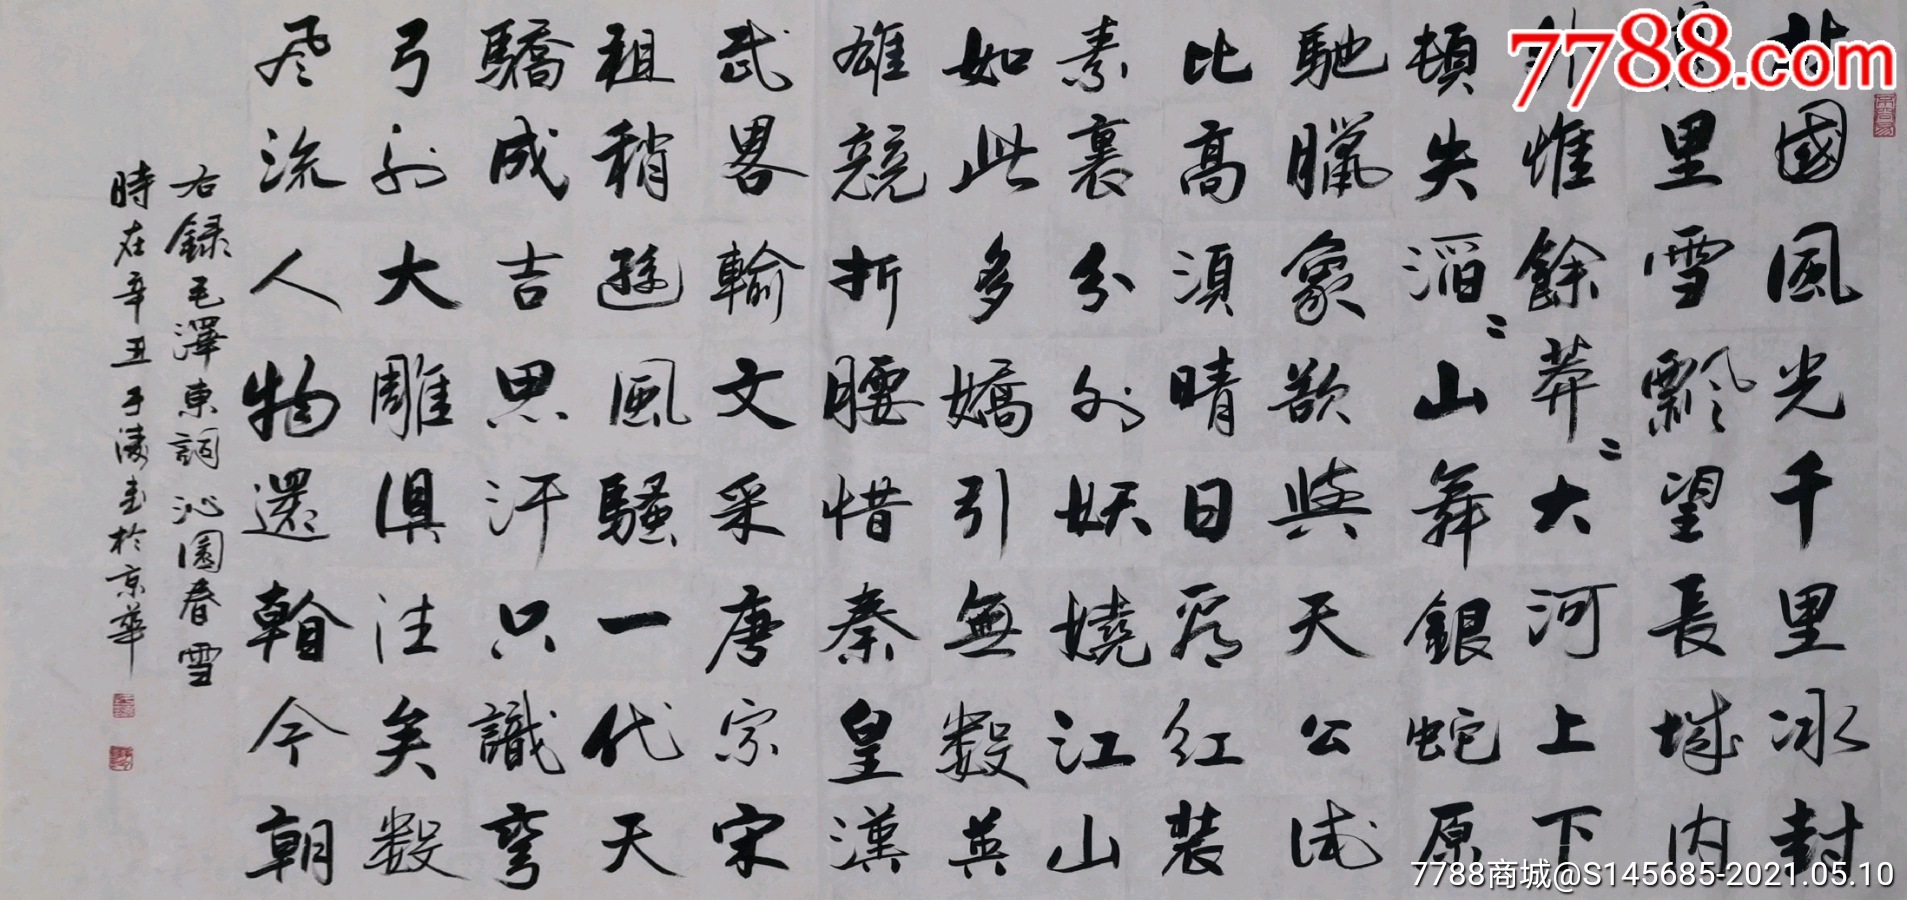 北國風光千里冰封
萬里雪飄望長城內
外惟餘莽〻大河上下
頓失滔〻山舞銀蛇原
馳臘象欲與天公試
比高須晴日看紅裝
素裹分外妖嬈江山
如此多嬌引無數英
雄競折腰惜秦皇漢
武畧輸文采唐宗宋
祖稍遜風騷一代天
驕成吉思汗只識彎
弓射大雕俱往矣數
風流人物還看今朝
右錄毛澤東詞沁園春雪
時在辛丑于濤書於京華
7788.com
7788商城@S145685-2021.05.10